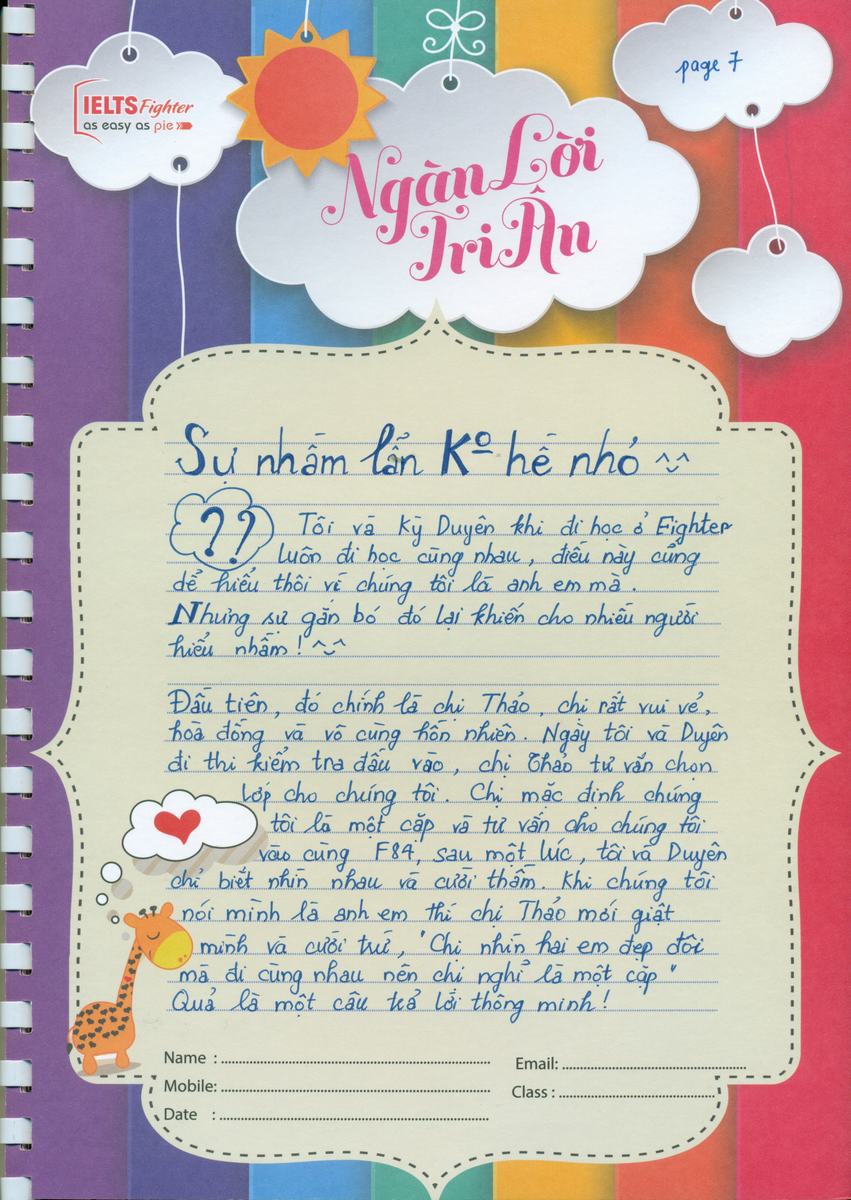 IELTS Fighter
as easy as pie
page 7
Ngàn Lời
Tri Ân
Sự nhầm lẫn Kº hề nhỏ ^^
??
Tôi và Kỳ Duyên khi đi học ở Fighter
luôn đi học cùng nhau, điều này cũng
dễ hiểu thôi vì chúng tôi là anh em mà.
Nhưng sự gắn bó đó lại khiến cho nhiều người
hiểu nhầm! ^^
Đầu tiên, đó chính là chị Thảo, chị rất vui vẻ,
hoà đồng và vô cùng hồn nhiên. Ngày tôi và Duyên
đi thi kiểm tra đầu vào, chị Thảo tư vấn chọn
lớp cho chúng tôi. Chị mặc định chúng
tôi là một cặp và tư vấn cho chúng tôi
vào cùng F84, sau một lúc, tôi và Duyên
chỉ biết nhìn nhau và cười thầm. Khi chúng tôi
nói mình là anh em thì chị Thảo mới giật
mình và cười trừ, "Chị nhìn hai em đẹp đôi
mà đi cùng nhau nên chị nghĩ là một cặp"
Quả là một câu trả lời thông minh!
Name :
Email:
Mobile:
Class :
Date :